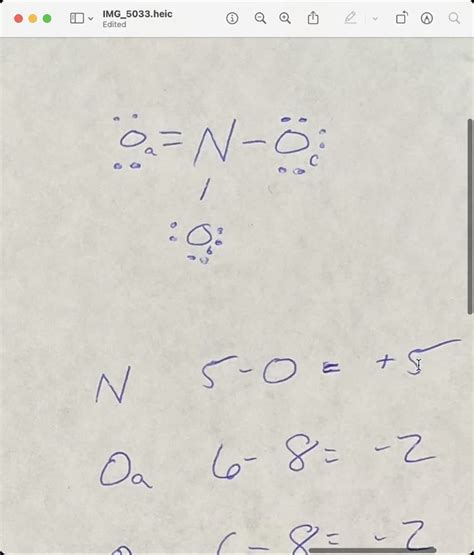 IMG_5033.heic
Edited
Oa = N - Oc
Ob
N 5 - 0 = +5
Oa 6 - 8 = -2
O 6 - 8 = -2